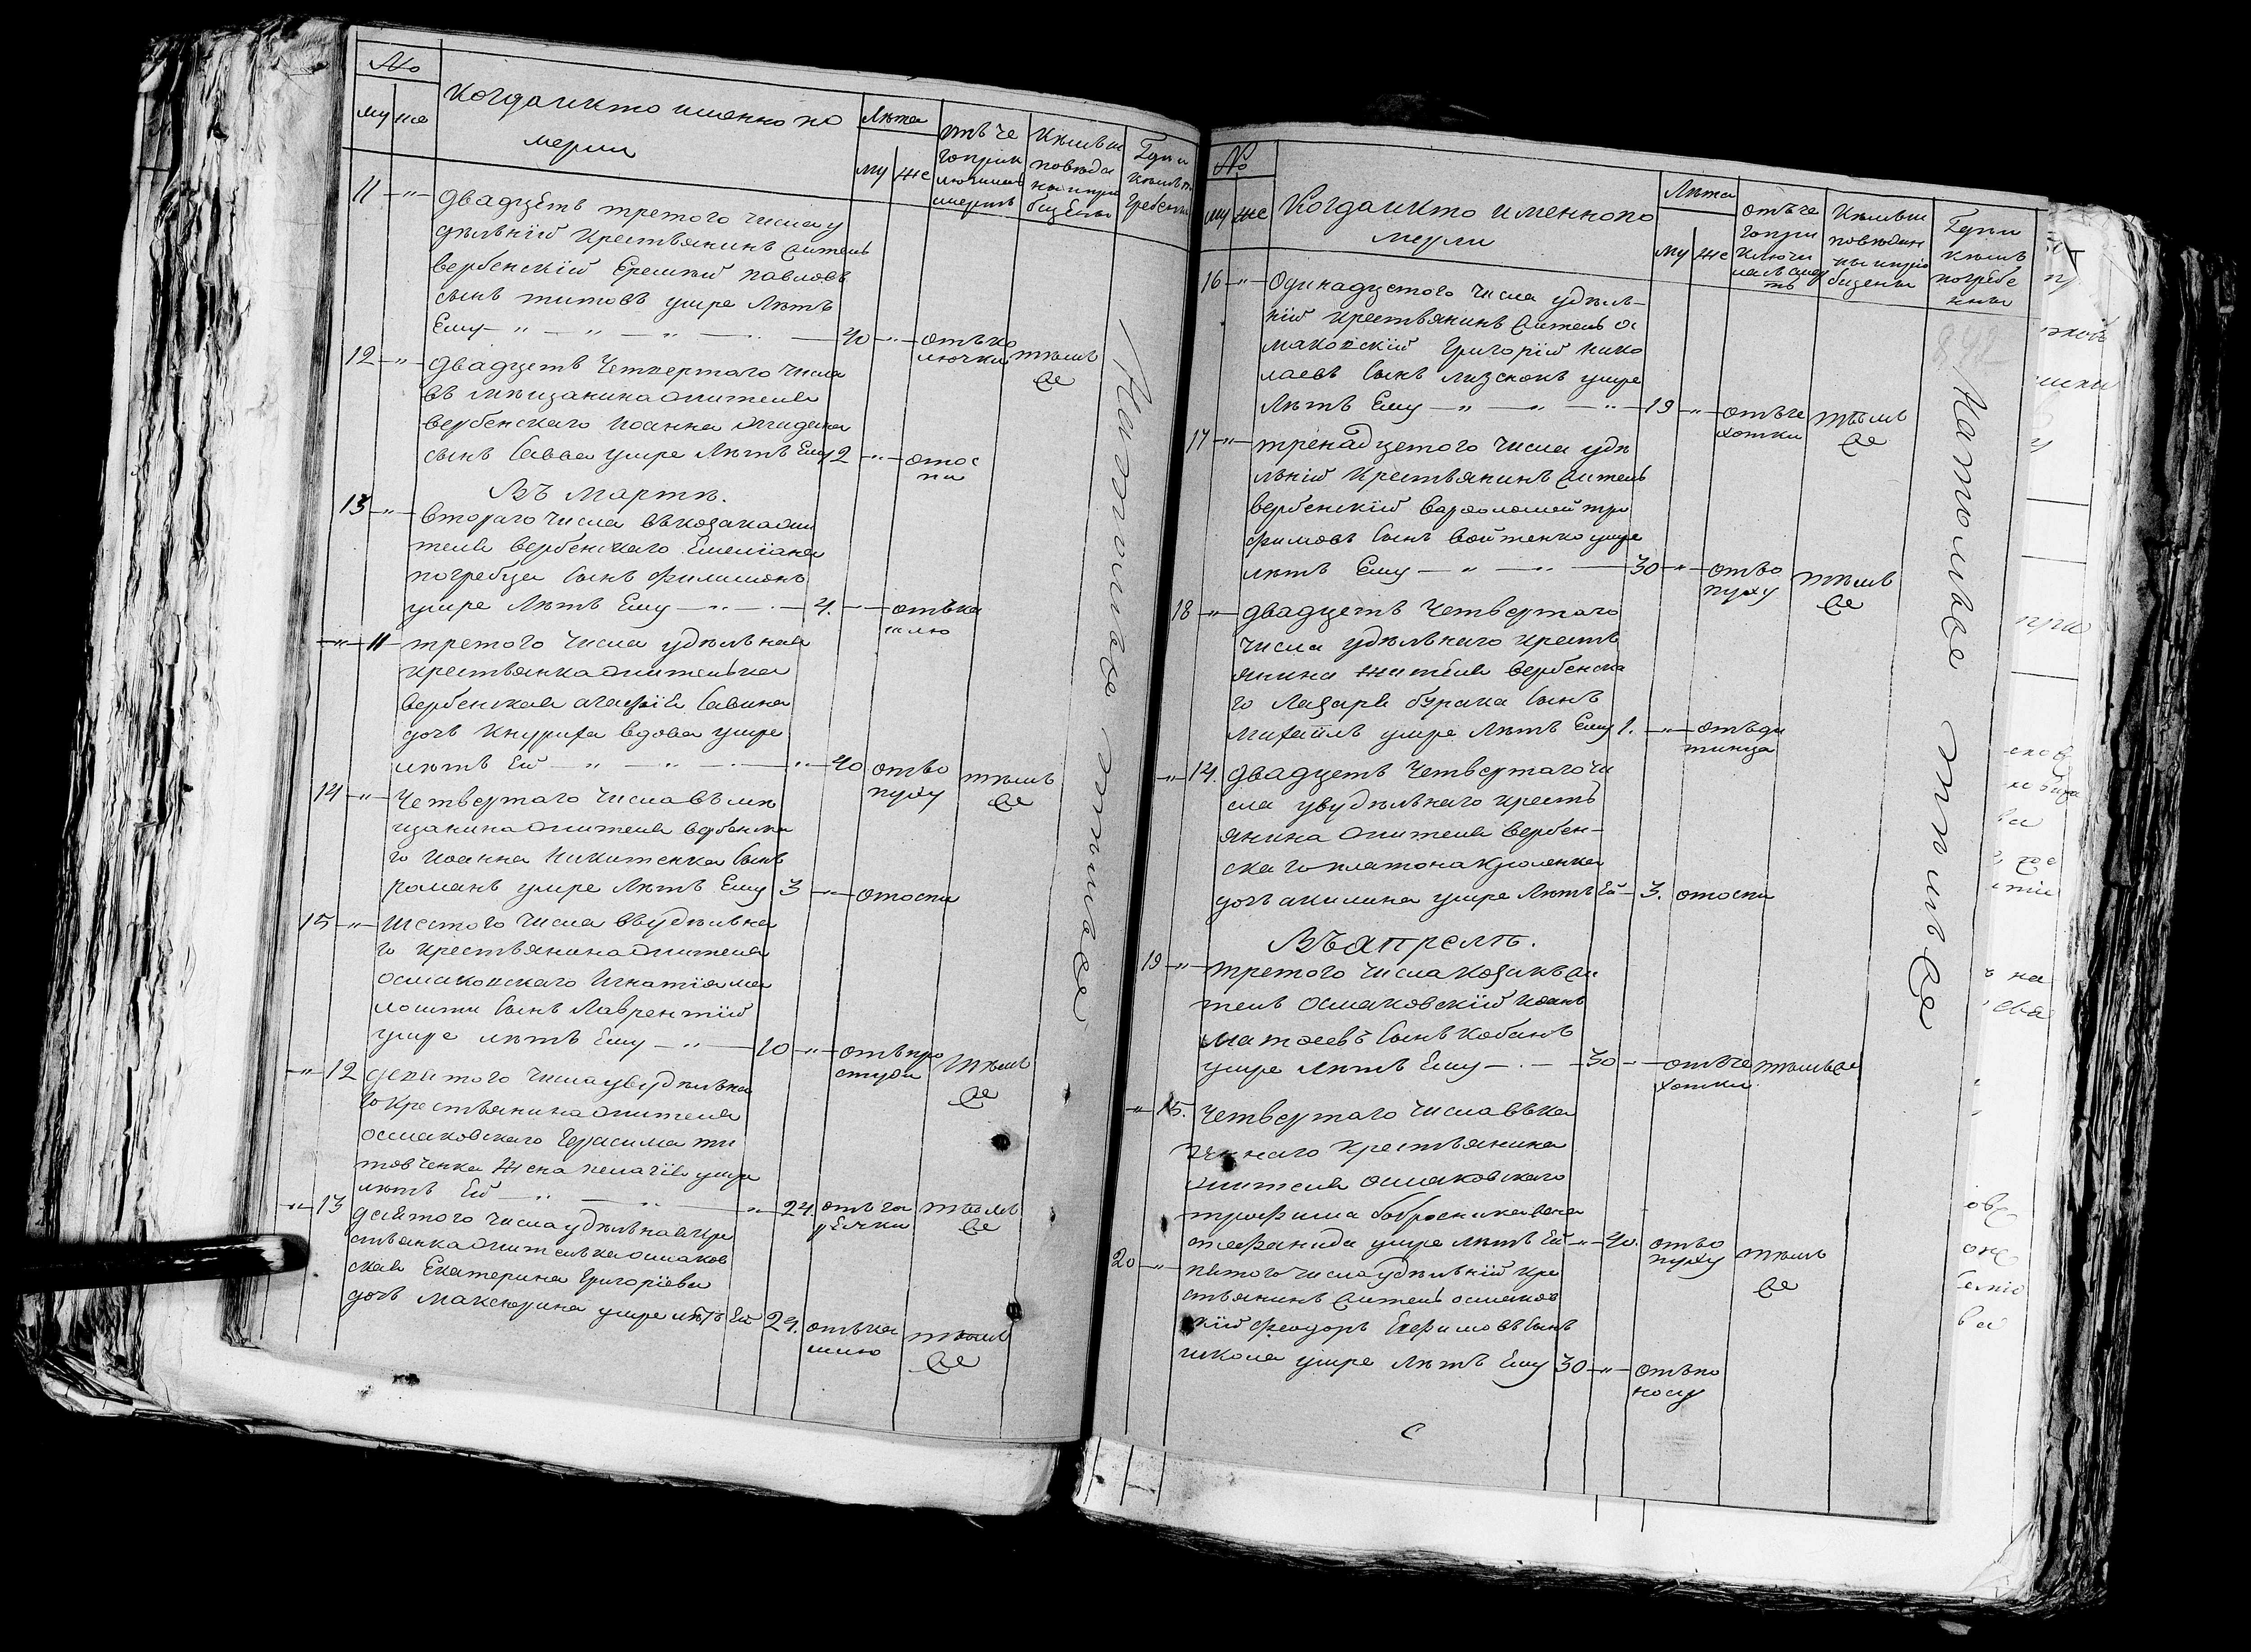 №
му же
Когда и кто именно по
мерли
Лѣта
му же
отъ че
го прик
лючилась
смерть
Кѣмъ ис
повѣда
ны и прі
общены
Гдѣ и
кѣмъ по
гребены
11 двадцеть третого числа у
дѣлній крестьянинъ житель
вербенскій Еремѣй павловъ
сынъ титовъ умре лѣтъ
Ему 40 отъ ко
лючки тѣмъ
же
12 двадцеть четвертого числа
въ мѣщанина жителя
вербенскаго Иоанна
сынъ Савва умре лѣтъ Ему 2 отос
пи
Въ Мартѣ.
13 втораго числа въ козака жи
теля вербенскаго Емелiана
погребца сынъ Филимонъ
умре лѣтъ Ему 4. отъ ка
шлю
11 третого числа удѣльная
крестьянка жителька
вербенская агафія Савина
дочь Кнуриха вдова умре
лѣтъ Ей 40 отъ о
пуху тѣмъ
же
14 Четвертаго числа въ мѣ
щанина жителя вербенска
го Иоанна Никитенка сынъ
романъ умре лѣтъ Ему 3 отоспи
15 шестого числа въ удѣльна
го крестьянина жителя
осмаковскаго Игнатія ма
лошти сынъ Лаврентій
умре лѣтъ Ему 20 отъ про
студи тѣмъ
же
12 девятого числа у вудѣльна
го крестьянина жителя
осмаковскаго Герасима ти
товченка жена пелагія умре
лѣтъ Ей 24. отъ га
рячки тѣмъ
же
13 девятого числа удѣльная кре
стьянка жителька осмаков
ская Екатерина Григоріева
дочь максюрина умре лѣтъ Ей 29. отъ ка
шлю тѣмъ
же
На кладбище
№
му же
Когда и кто именно по
мерли
Лѣта
му же
отъ че
го при
ключи
лась смер
ть
Кѣмъ ис
повѣдан
ны и пріо
бщены
Гдѣ и
кѣмъ
погребе
нны
16 Одинадцетого числа удѣль-
ній крестьянинъ житель ос
маковскій Григорій нико
лаевъ сынъ умре
Лѣтъ Ему 19 отъ че
хотки тѣмъ
же
17 тренадцетого числа удѣ
льній крестьянинъ житель
вербенскій варфоломей тро
фимовъ сынъ войтенко умре
лѣтъ Ему 30 отъ о
пуху тѣмъ
же
18 двадцеть четвертаго
числа удѣльнаго кресть
янина жителя вербенска
го Лазаря бурака сынъ
михаилъ умре лѣтъ Ему 1. отъ ди
тинца
14. двадцеть четвертаго чи
сла у вудѣльнаго кресть
янина жителя вербен-
скаго платона кроленка
дочь акилина умре лѣтъ Ей 3. отоспи
Въ апрелѣ.
19 третого числа козакъ жи
тель осмаковскій иоанъ
матфеевъ сынъ кобанъ
умре лѣтъ Ему 30 отъ че
хотки тѣмъ же
15. четвертаго числа въ ка
зеннаго крестьянина
жителя осмаковскаго
трофима жена
стефанида умре лѣтъ Ей 40. отъ о
пуху тѣмъ
же
20 пятого числа удѣльній кре
стьянинъ житель осмаков
скій феодоръ Евфимовъ сынъ
школа умре лѣтъ Ему 30 отъ по
носу
На кладбище